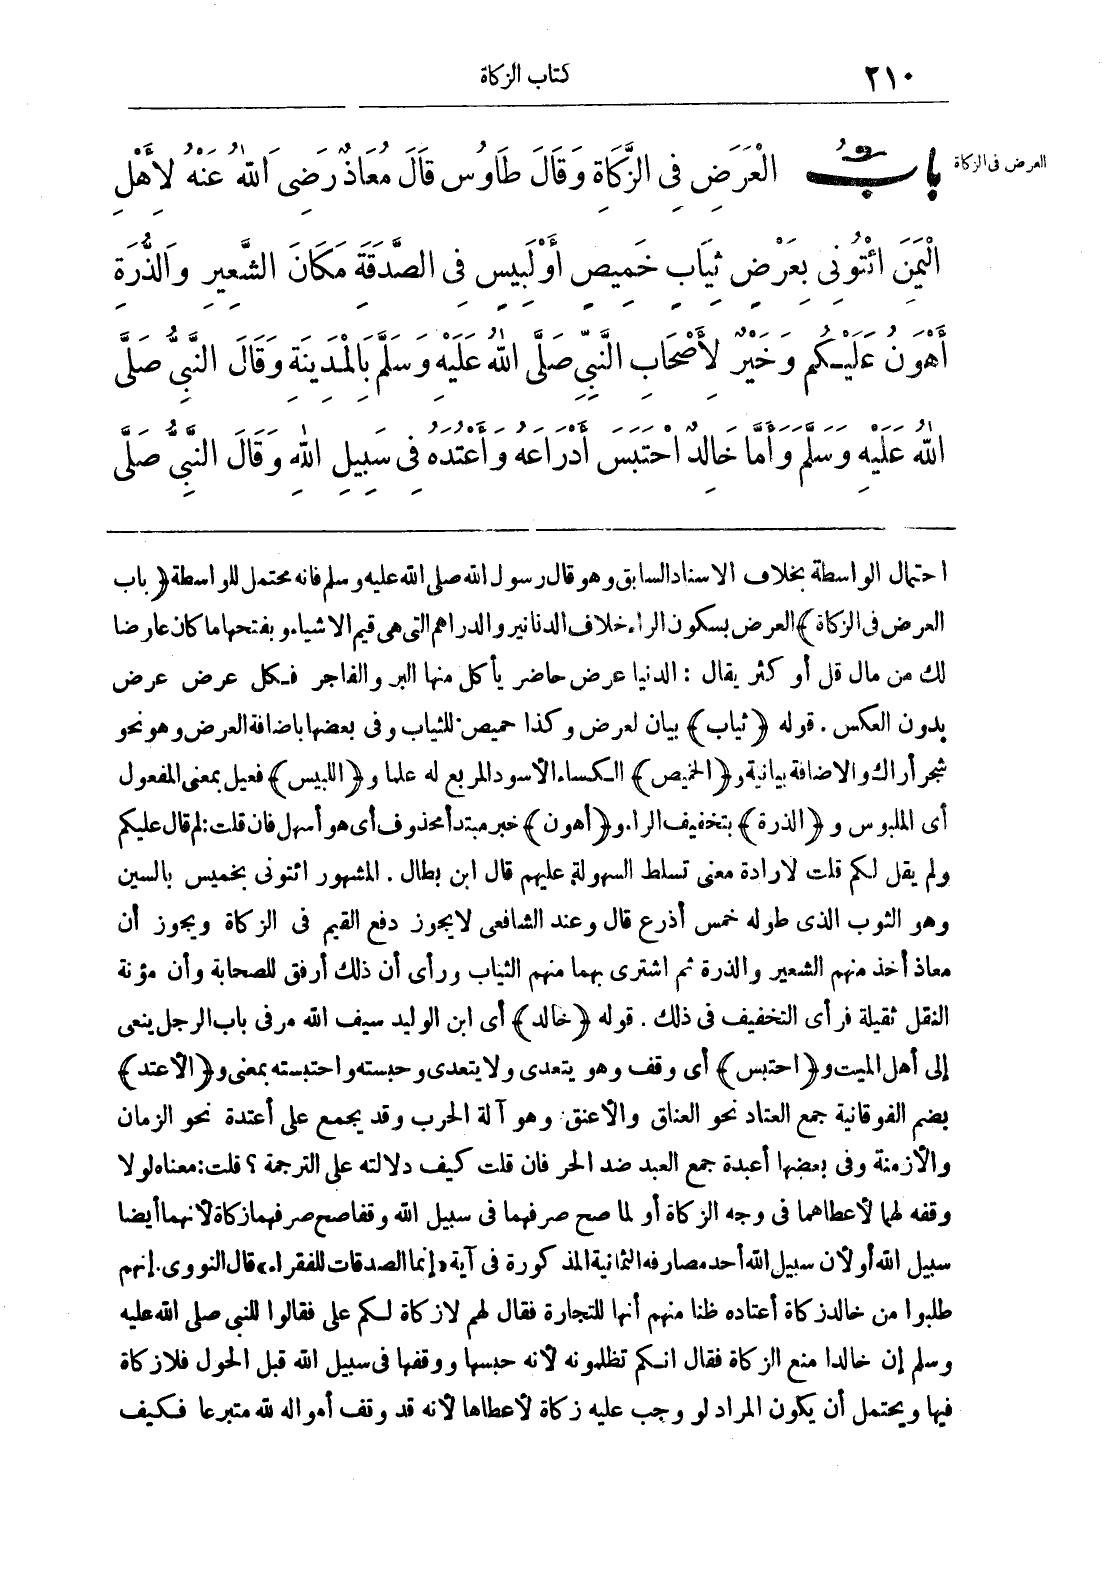 ٢١٠ كتاب الزكاة
العرض فى الزكاة
بَابُ الْعَرَضِ فِى الزَّكَاةِ وَقَالَ طَاوُسٌ قَالَ مُعَاذٌ رَضِىَ اللهُ عَنْهُ لِأَهْلِ
الْيَمَنِ ائْتُونِى بِعَرْضٍ ثِيَابٍ خَمِيصٍ أَوْ لَبِيسٍ فِى الصَّدَقَةِ مَكَانَ الشَّعِيرِ وَالذُّرَةِ
أَهْوَنُ عَلَيْكُمْ وَخَيْرٌ لِأَصْحَابِ النَّبِىِّ صَلَّى اللهُ عَلَيْهِ وَسَلَّمَ بِالْمَدِينَةِ وَقَالَ النَّبِىُّ صَلَّى
اللهُ عَلَيْهِ وَسَلَّمَ وَأَمَّا خَالِدٌ احْتَبَسَ أَدْرَاعَهُ وَأَعْتُدَهُ فِى سَبِيلِ اللهِ وَقَالَ النَّبِىُّ صَلَّى
احتمال الواسطة بخلاف الاسناد السابق وهو قال رسول الله صلى الله عليه وسلم فانه محتمل للواسطة ﴿باب
العرض فى الزكاة﴾ العرض بسكون الراء خلاف الدنانير والدراهم التى هى قيم الاشياء وبفتحها ما كان عارضا
لك من مال قل أو كثر يقال : الدنيا عرض حاضر يأكل منها البر والفاجر فكل عرض عرض
بدون العكس . قوله ﴿ثياب﴾ بيان لعرض وكذا خميص للثياب وفى بعضها باضافة العرض وهو نحو
شجر أراك والاضافة بيانية و﴿الخميص﴾ الكساء الأسود المربع له علما و﴿اللبيس﴾ فعيل بمعنى المفعول
أى الملبوس و﴿الذرة﴾ بتخفيف الراء و﴿أهون﴾ خبر مبتدأ محذوف أى هو أسهل فان قلت : لم قال عليكم
ولم يقل لكم قلت لارادة معنى تسلط السهولة عليهم قال ابن بطال . المشهور ائتونى بخميس بالسين
وهو الثوب الذى طوله خمس أذرع قال وعند الشافعى لا يجوز دفع القيم فى الزكاة ويجوز أن
معاذ أخذ منهم الشعير والذرة ثم اشترى بهما منهم الثياب ورأى أن ذلك أرفق للصحابة وأن مؤنة
النقل ثقيلة فرأى التخفيف فى ذلك . قوله ﴿خالد﴾ أى ابن الوليد سيف الله مر فى باب الرجل ينعى
إلى أهل الميت و﴿احتبس﴾ أى وقف وهو يتعدى ولا يتعدى وحبسته واحتبسته بمعنى و﴿الأعتد﴾
بضم الفوقانية جمع العتاد نحو العناق والأعنق وهو آلة الحرب وقد يجمع على أعتدة نحو الزمان
والأزمنة وفى بعضها أعبدة جمع العبد ضد الحر فان قلت كيف دلالته على الترجمة ؟ قلت : معناه لولا
وقفه لهما لأعطاهما فى وجه الزكاة أو لما صح صرفهما فى سبيل الله وقفا صح صرفهما زكاة لأنهما أيضا
سبيل الله أو لأن سبيل الله أحد مصارفه الثمانية المذكورة فى آية «إنما الصدقات للفقراء» قال النووى . إنهم
طلبوا من خالد زكاة أعتاده ظنا منهم أنها للتجارة فقال لهم لا زكاة لكم على فقالوا للنبى صلى الله عليه
وسلم إن خالدا منع الزكاة فقال انكم تظلمونه لأنه حبسها ووقفها فى سبيل الله قبل الحول فلا زكاة
فيها ويحتمل أن يكون المراد لو وجب عليه زكاة لأعطاها لأنه قد وقف أمواله لله متبرعا فكيف